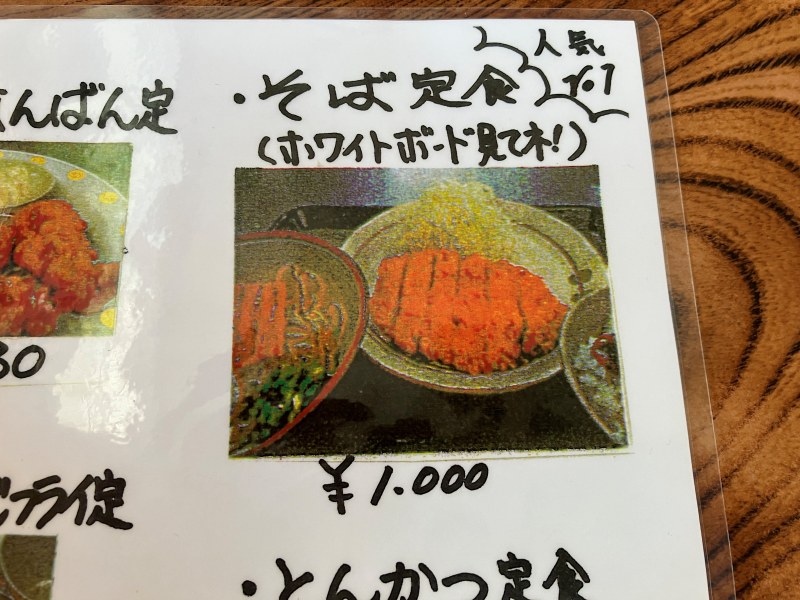 人気
・そば定食
No.1
んばん定
(ホワイトボード見てネ!)
30
¥1.000
フライ定
・とんかつ定食